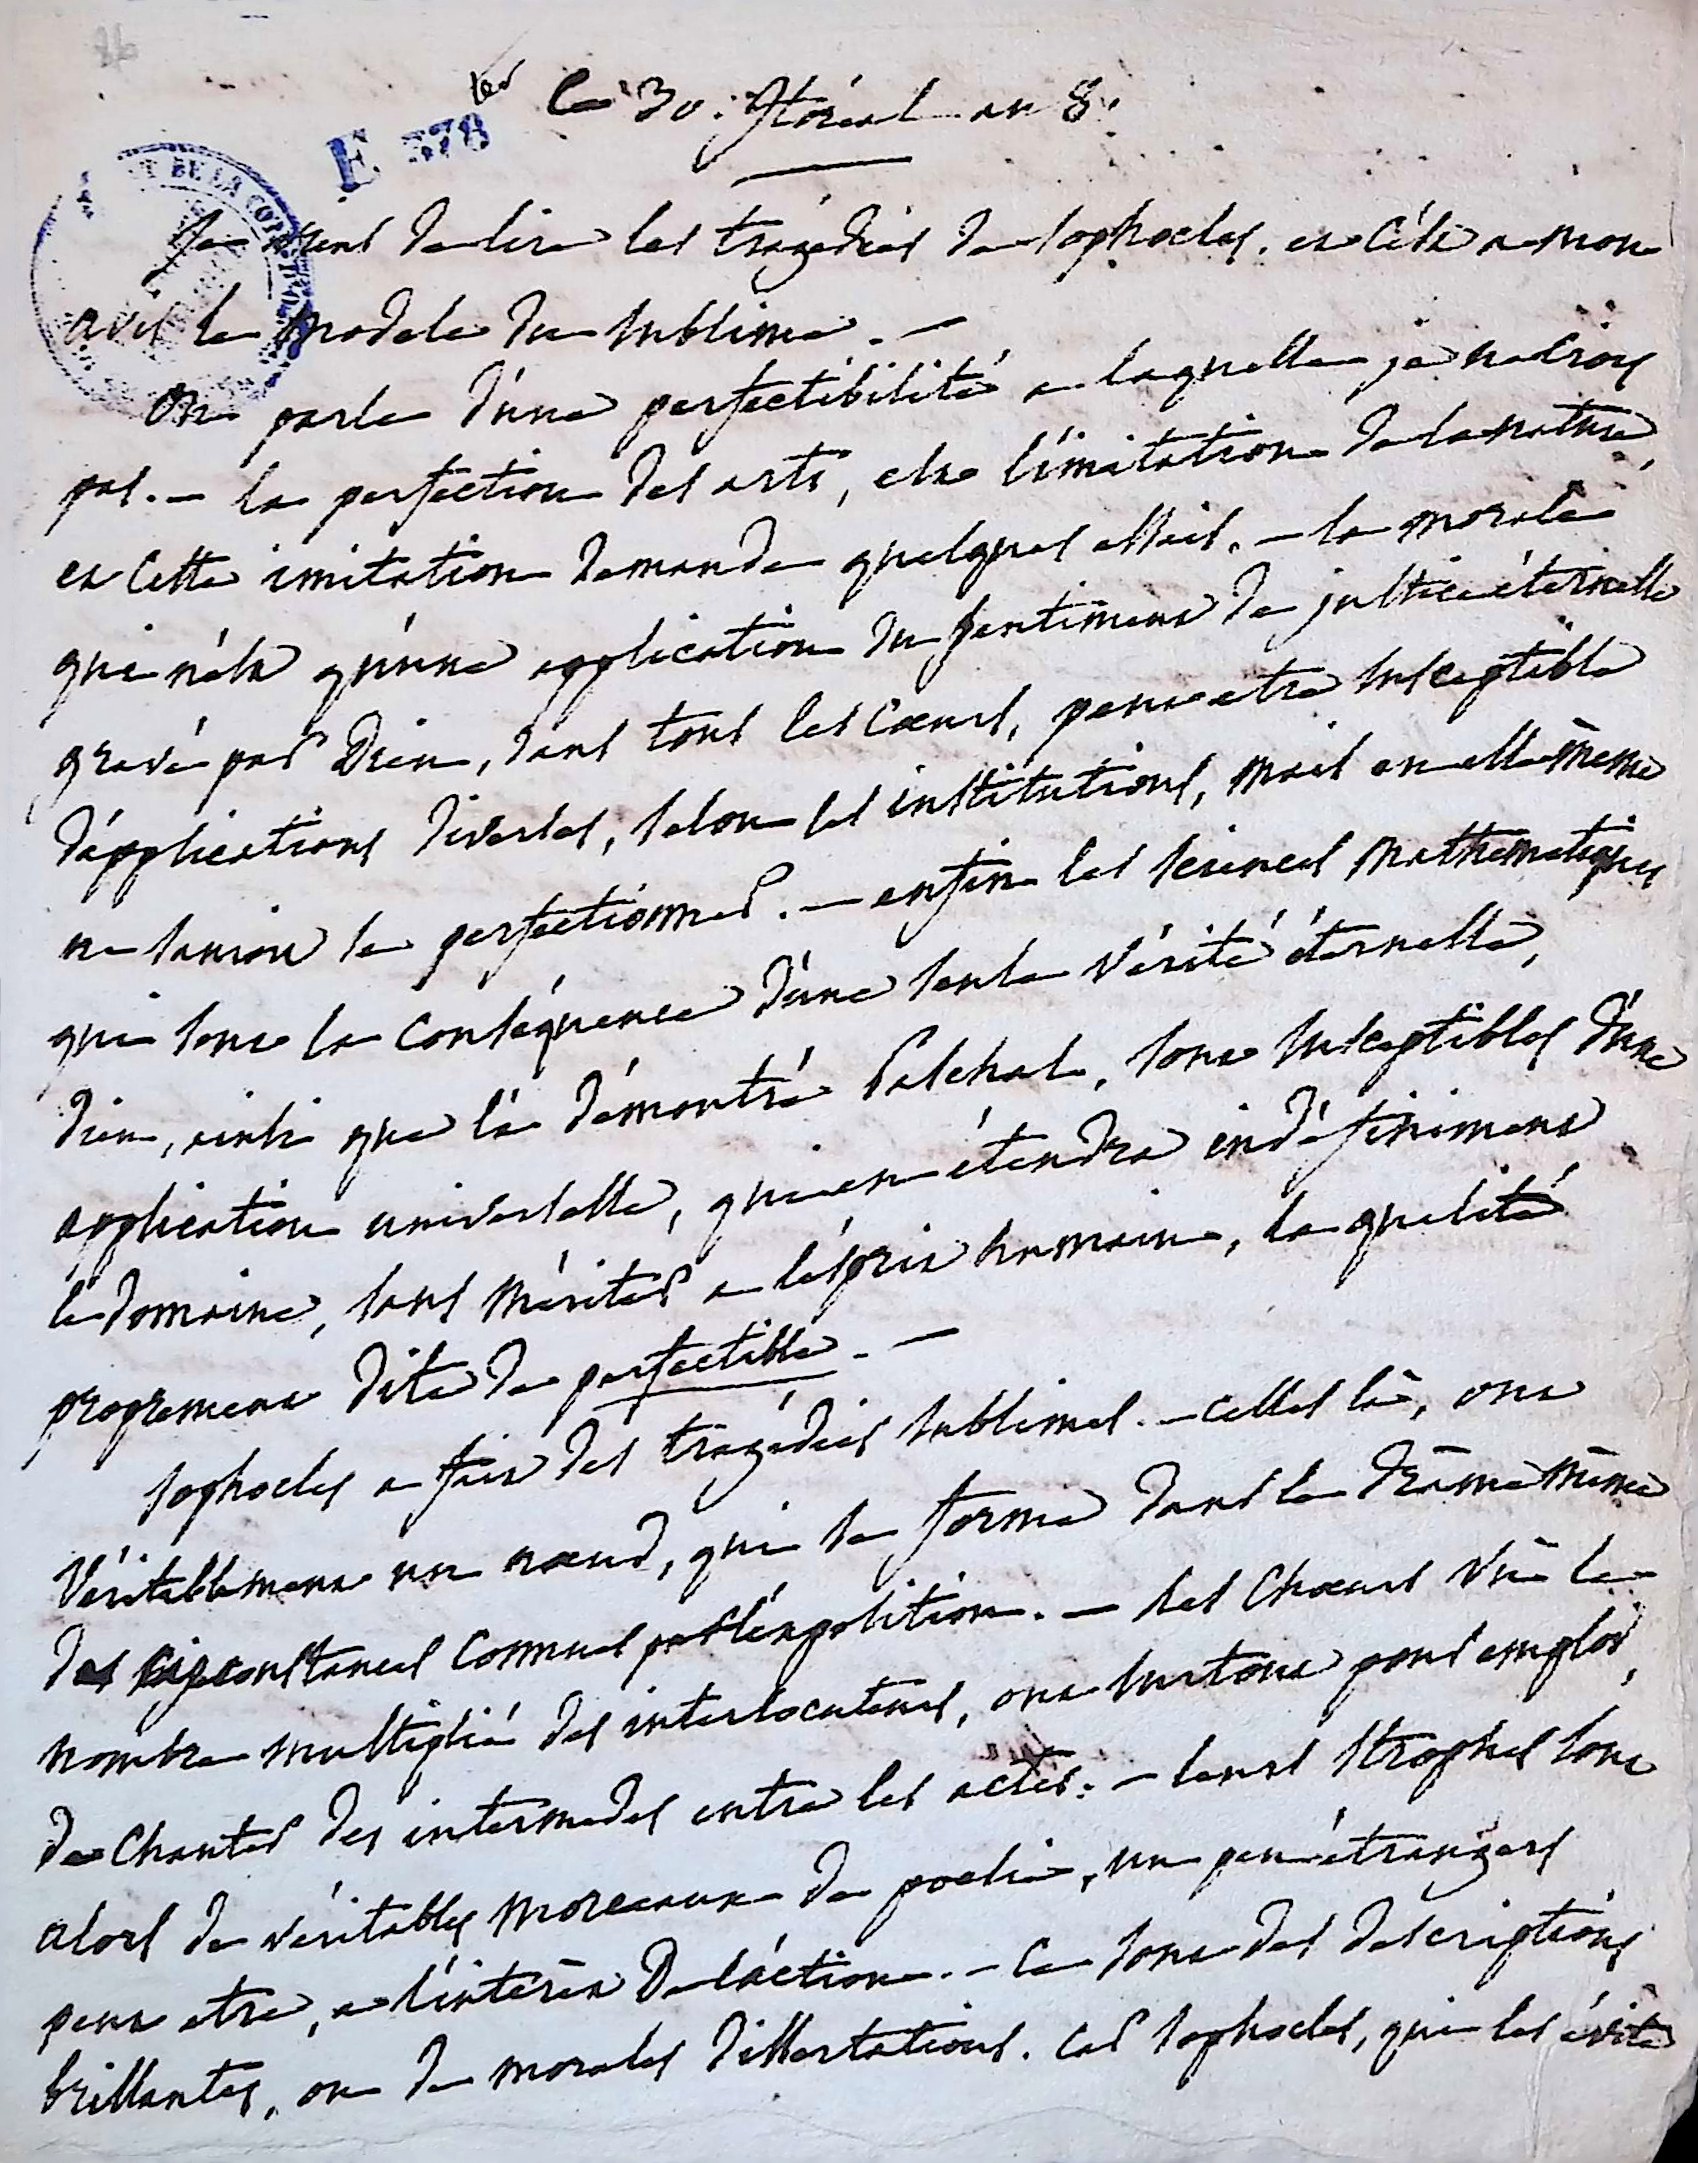 26
E 378 ter
Le 30. floréal an 8.
DE LA CO
Je viens de lire les tragedies de sophocles. et c'est a mon
avis le modele du sublime. —
On parle d'une perfectibilité a laquelle je ne crois
pas. — la perfection des arts, est l'imitation de la nature,
et cette imitation demande quelques essais. — la morale
qui n'est qu'une application du sentiment de justice éternelle
gravé par Dieu, dans tous les cœurs, peut etre susceptible
d'applications diverses, selon les institutions, mais en elle même
ne sauroit se perfectionner. — enfin les sciences mathematiques
qui sont la conséquence d'une seule vérité éternelle,
dieu, ainsi que l'a démontré Paschal, sont susceptibles d'une
application universelle, qui en étendra indéfiniment
le domaine, sans mériter a l'esprit humain, la qualité
proprement dite de perfectible. —
sophocles a fait des tragédies sublimes. — celles là, ont
véritablement un nœud, qui se forme dans le drâme même
des circonstances connues par l'exposition. — les chœurs vû le
nombre multiplié des interlocuteurs, ont surtout pour emploi,
de chanter des intermedes entre les actes. — leurs strophes sont
alors de véritables morceaux de poesie, un peu étrangers
peut etre, a l'intérêt De l'action. — Ce sont des descriptions
brillantes, ou de morales dissertations. car sophocles, qui les évite